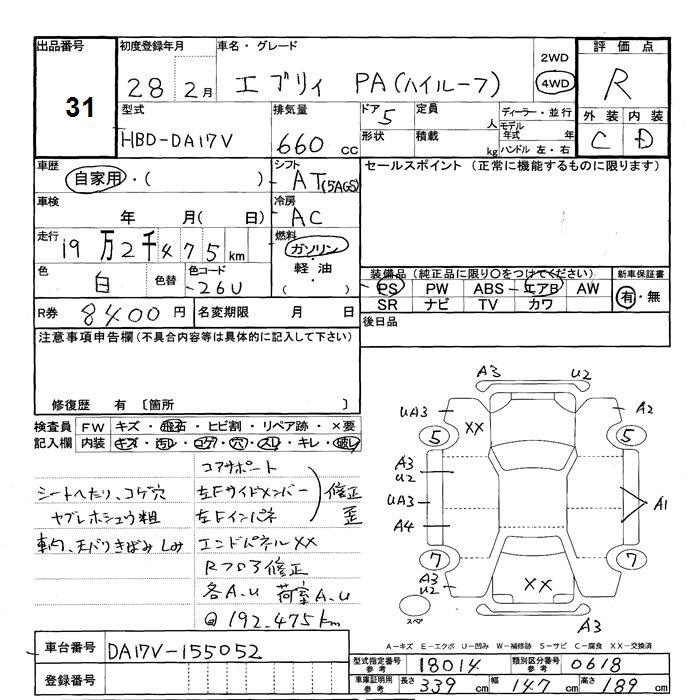 出品番号 初度登録年月 車名・グレード 評価点
31 28年 2月 エブリィ PA(ハイルーフ) 2WD 4WD R
型式 排気量 ドア 5 定員 人 ディーラー・並行 外装 内装
HBD-DA17V 660 cc 形状 積載 kg モデル年式 年 C D
ハンドル 左・右
車歴 シフト セールスポイント (正常に機能するものに限ります)
自家用・( ) AT(5AGS)
車検 冷房
年 月( 日) AC
走行 19万2千475km 燃料
ガソリン
色 白 色替 色コード 26U 軽油
( )
装備品 (純正品に限り○をつけてください) 新車保証書
PS PW ABS エアB AW 有・無
SR ナビ TV カワ
R券 8400円 名変期限 月 日 後日品
注意事項申告欄(不具合内容等は具体的に記入して下さい)
修復歴 有 〔箇所 〕
検査員 FW キズ・飛石・ヒビ割・リペア跡・×要
記入欄 内装 キズ・汚レ・コゲ・穴・スレ・キレ・破レ
コアサポート
シートヘたり、コゲ穴 左Fサイドメンバー 修正
ヤブレホシュウ粗 左Fインパネ 歪
車内、天バリきばみしみ エンドパネルXX
Rフロア修正
各A.U 荷室A.U
@192.475km
A3 U2
UA3 XX A2
5 5
A3
U2
UA3 A1
A4
7 7
A3
U2 XX
スペア A3
A-キズ E-エクボ U-凹み W-補修跡 S-サビ C-腐食 XX-交換済
車台番号 DA17V-155052
登録番号
型式指定番号 参考 18014 類別区分番号 参考 0618
車庫証明用 参考 長さ 339 cm 幅 147 cm 高さ 189 cm